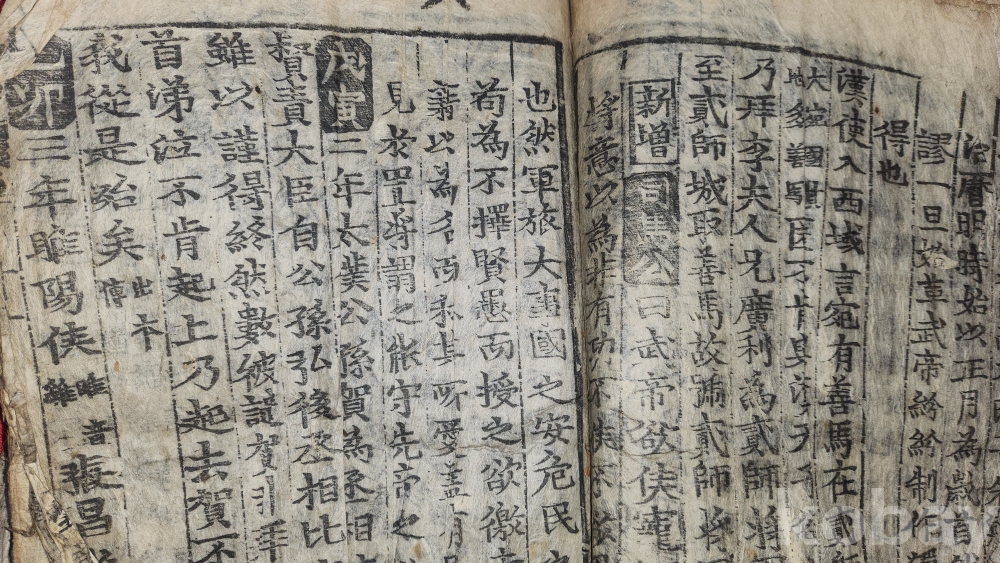 治曆明時始以正月為歲首
謬一旦始革武帝紛紛制作
得也
漢使入西域言宛有善馬在貳
匿不肯與漢天子
乃拜李夫人兄廣利為貳師將
至貳師城取善馬故號貳師將
新增 司馬公曰武帝欲侯寵
將意以為非有功不侯不
也然軍旅大事國之安危民
苟為不擇賢愚而授之欲徼
藉以為名而私其所愛盖有
見於置將謂之能守先帝之
戊寅二年太僕公孫賀為丞相
督責大臣自公孫弘後丞相比
雖以謹得終然數被譴賀引拜
首涕泣不肯起上乃起去賀不
我從是殆矣出本傳
己卯三年睢陽侯睢音雖張昌